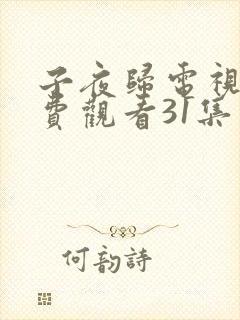 子夜歸電視
費觀看31集
何韵詩